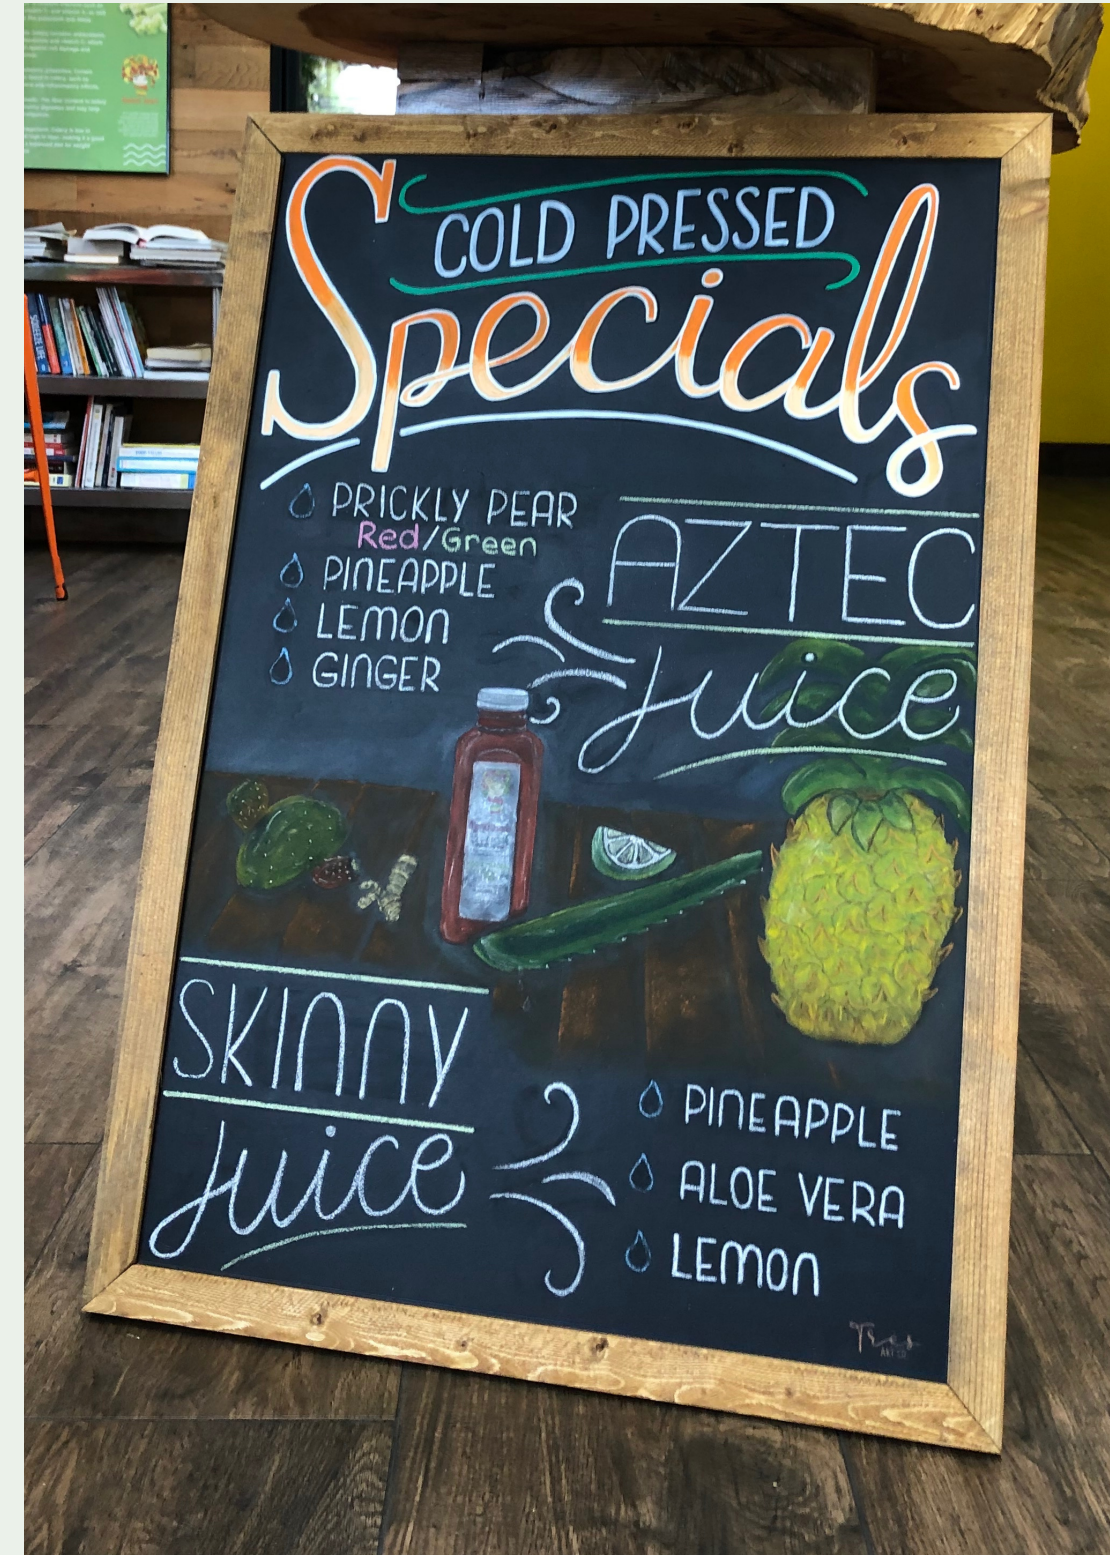 COLD PRESSED
Specials
PRICKLY PEAR
Red/Green
PINEAPPLE
LEMON
GINGER
AZTEC
Juice
SKINNY
Juice
PINEAPPLE
ALOE VERA
LEMON